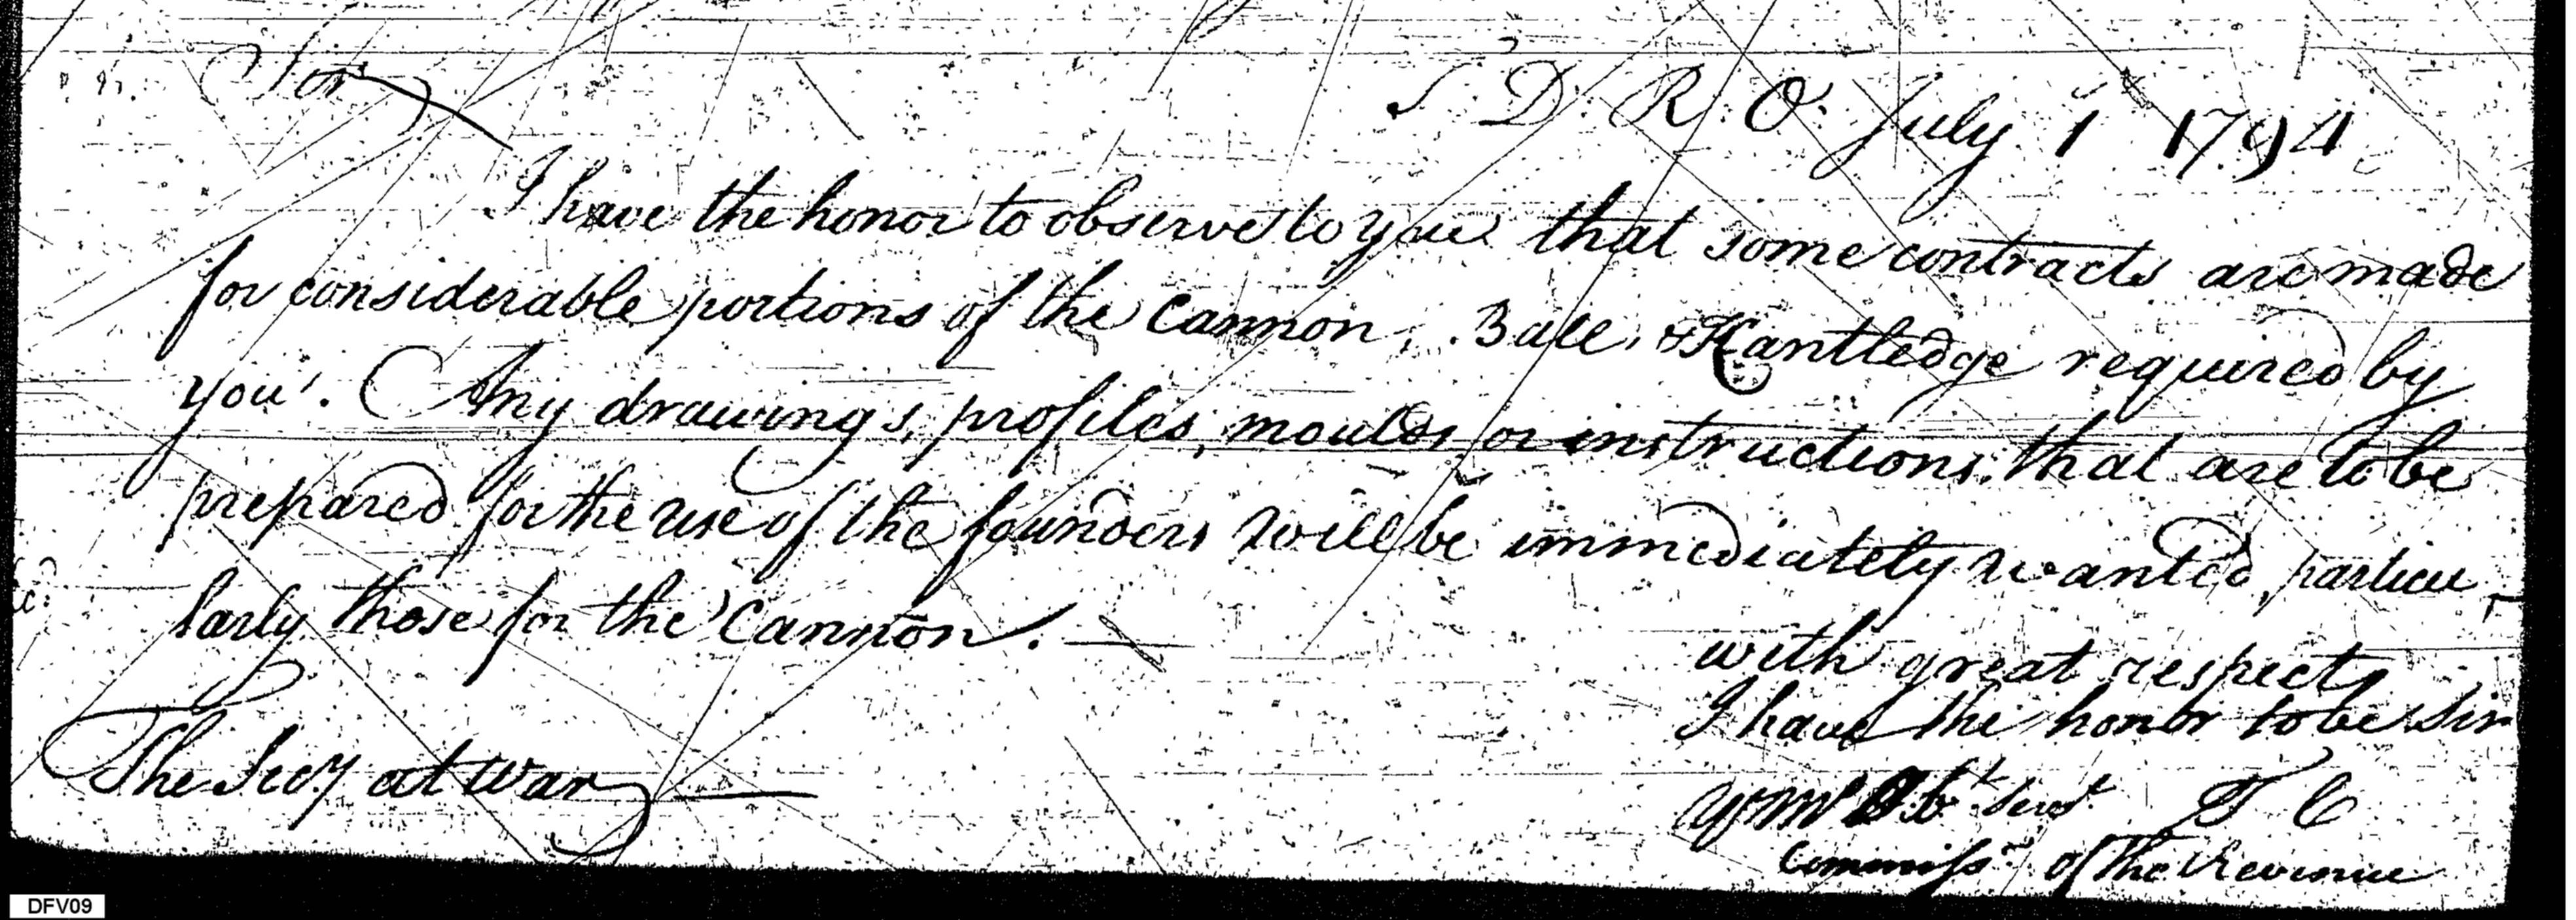 T. D. R. O. July 1 1794
Sir
I have the honor to observe to you that some contracts are made
for considerable portions of the Cannon, Ball, & Kantledge required by
you. Any drawings, profiles, moulds, or instructions that are to be
prepared for the use of the founders will be immediately wanted, particu-
larly those for the Cannon.—
with great respect
I have the honor to be Sir
yr. mo. Obt. Servt T C
Commissr of the Revenue
The Secy at War
DFV09